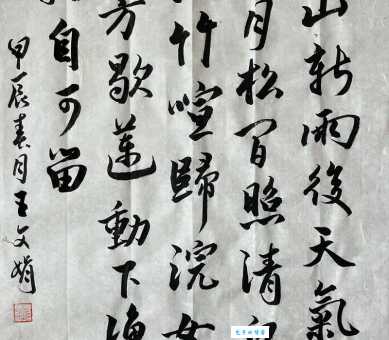 山新雨後天氣
月松間照清
竹喧歸浣女
芳歇蓮動下漁
自可留
甲辰春月王文娟